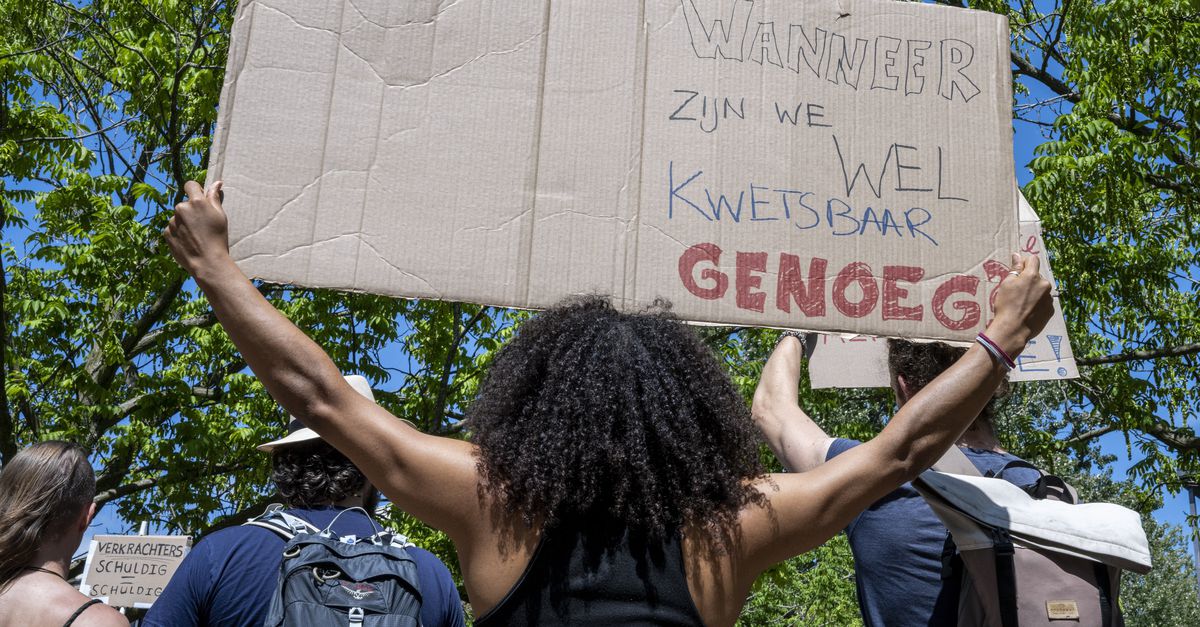 WANNEER
ZIJN WE
WEL
KWETSBAAR
GENOEG?
VERKRACHTERS
SCHULDIG
=
SCHULDIG